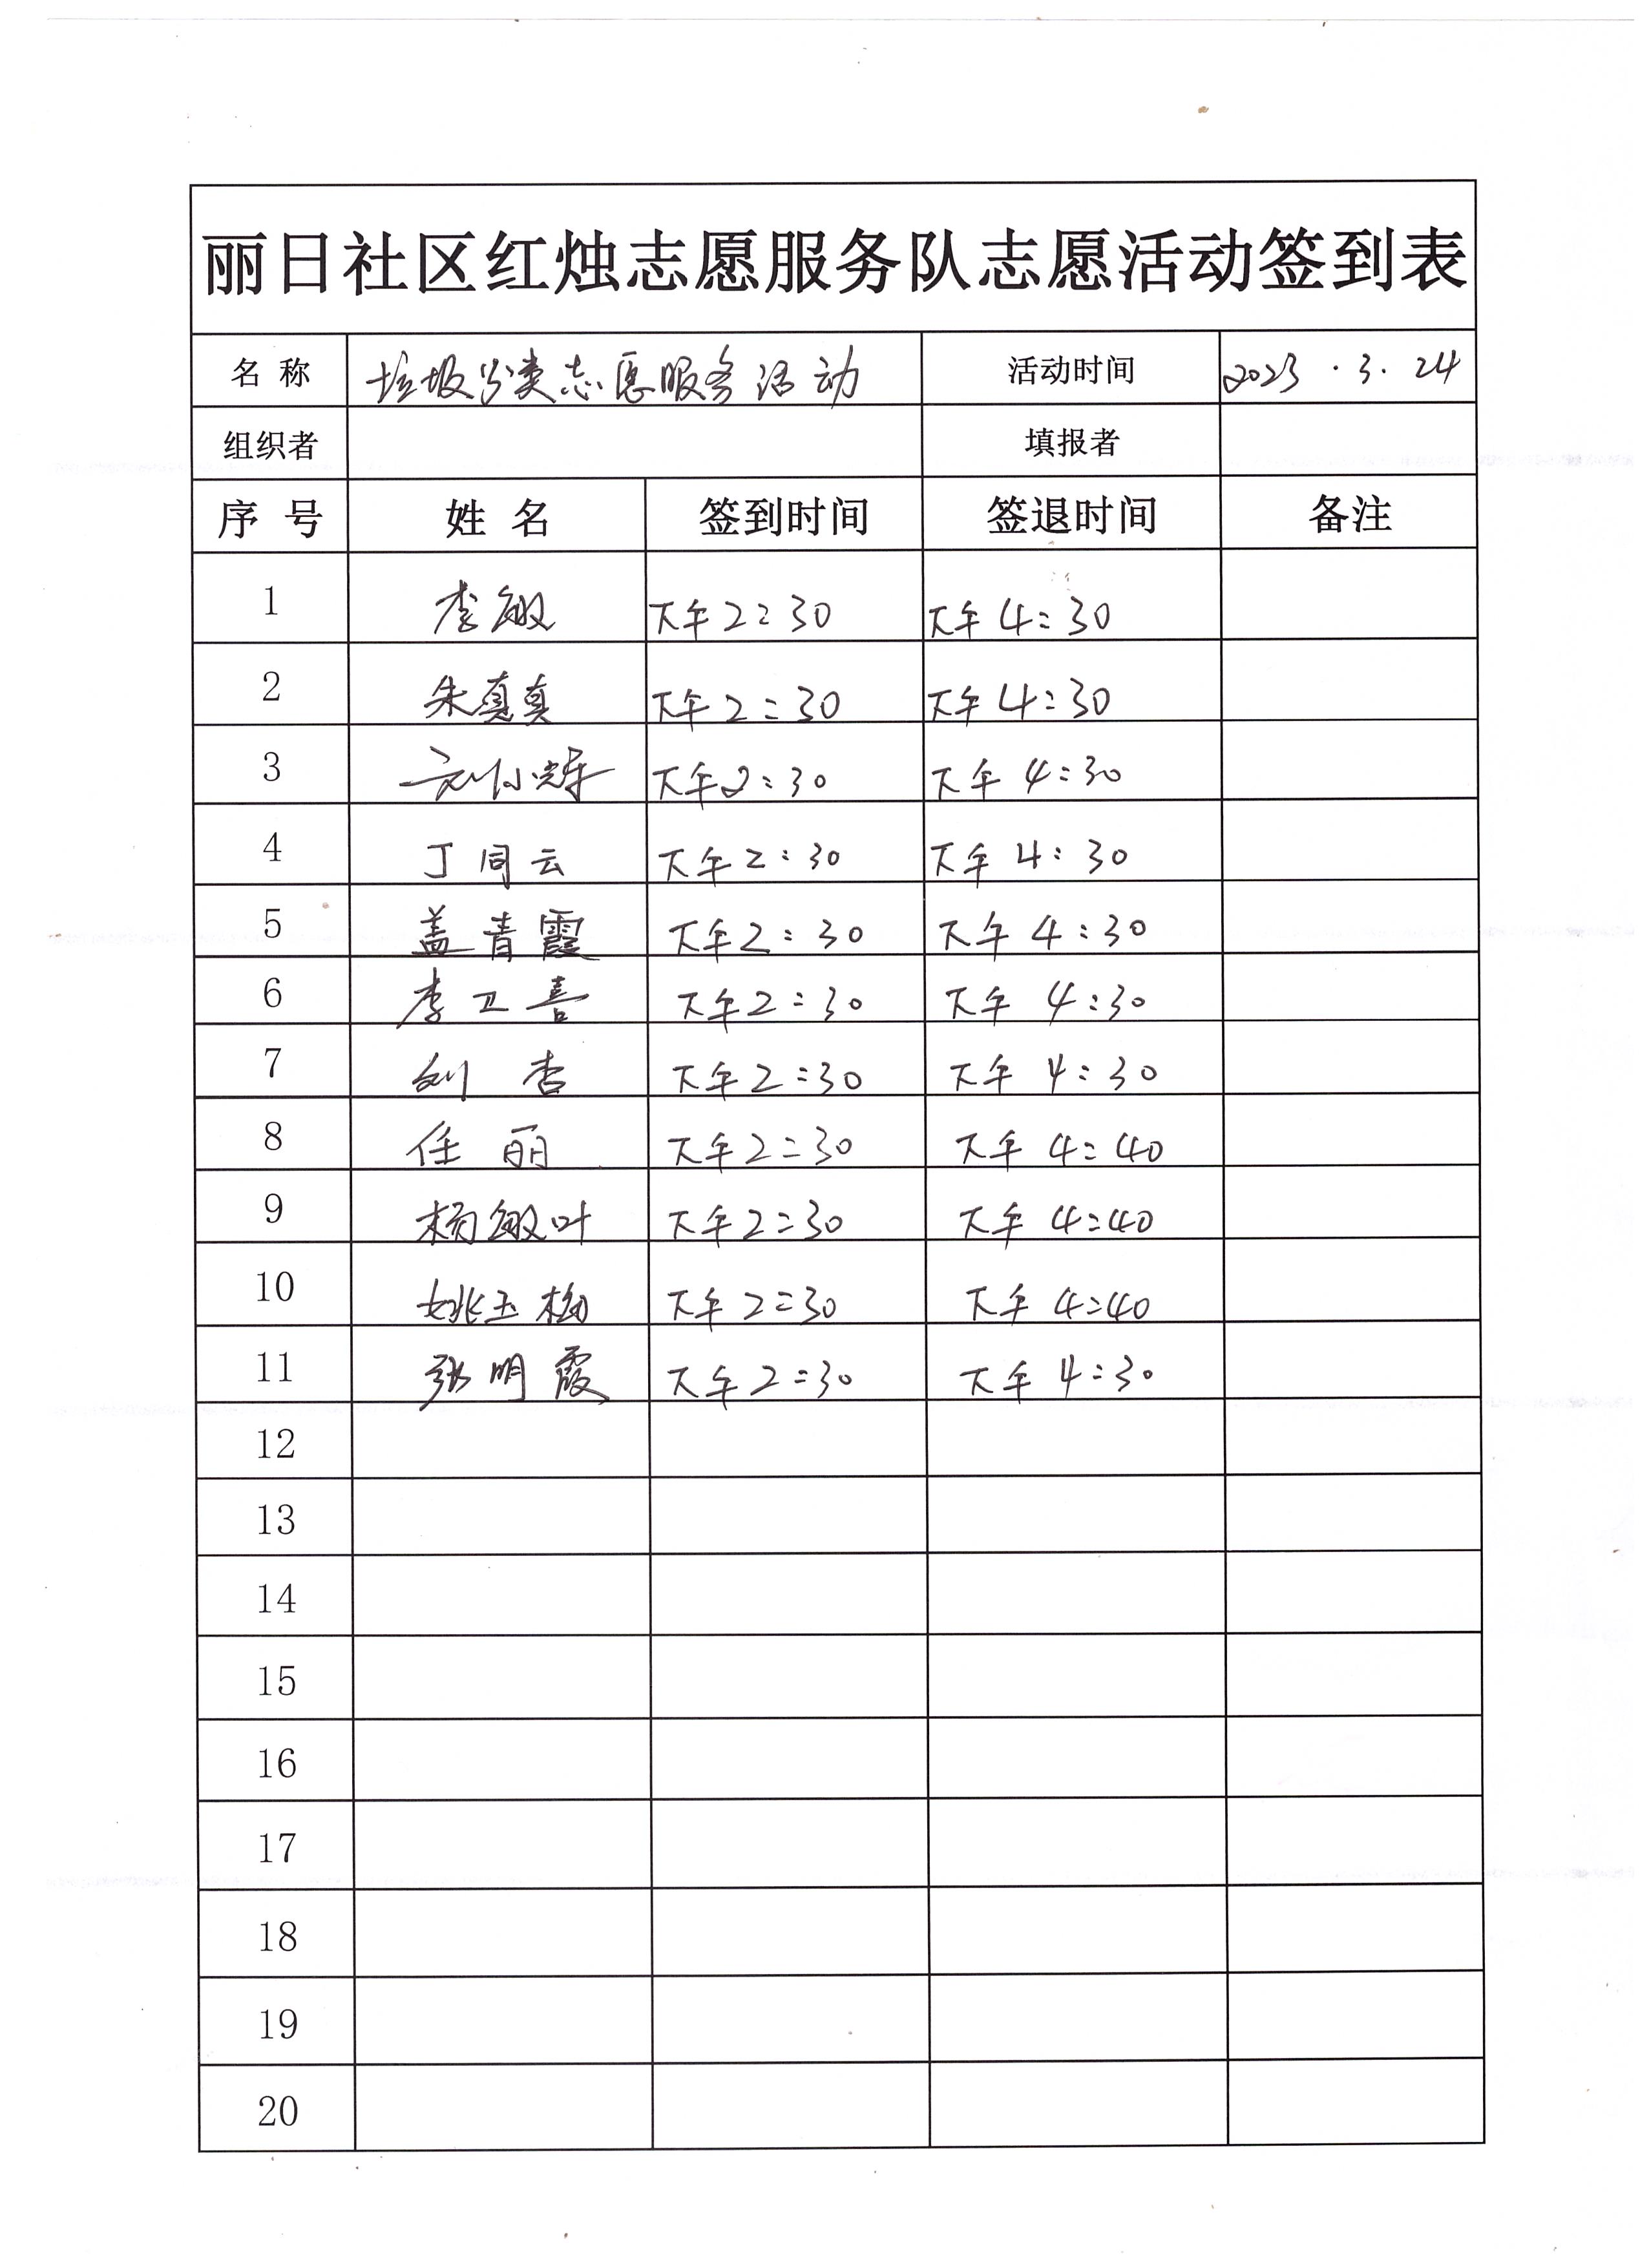 丽日社区红烛志愿服务队志愿活动签到表
名 称 垃圾分类志愿服务活动 活动时间 2023.3.24
组织者 填报者
序 号 姓 名 签到时间 签退时间 备注
1 李敏 下午2:30 下午4:30
2 朱真真 下午2:30 下午4:30
3 下午2:30 下午4:30
4 丁同云 下午2:30 下午4:30
5 盖青霞 下午2:30 下午4:30
6 李卫喜 下午2:30 下午4:30
7 刘杏 下午2:30 下午4:30
8 任丽 下午2:30 下午4:40
9 杨敏叶 下午2:30 下午4:40
10 姚玉梅 下午2:30 下午4:40
11 张明霞 下午2:30 下午4:30
12
13
14
15
16
17
18
19
20